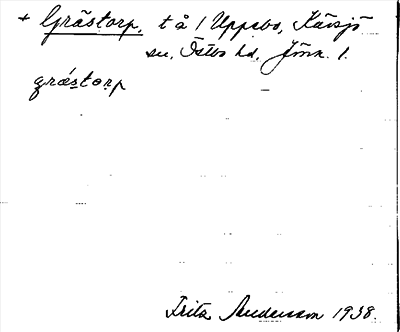 + Gråstorp, t å / Uppebo, Kävsjö
sn, Östbo hd, Jönk. l.
gråstorp
Fritz Andersson 1938.